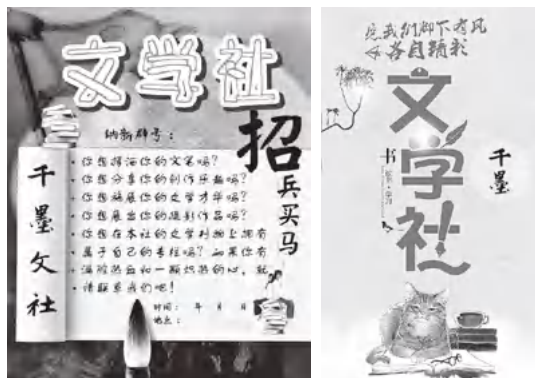 文学社
纳新群号：
招
兵买马
千墨文社
你想挥洒你的文笔吗？
你想分享你的创作乐趣吗？
你想施展你的文学才华吗？
你想展出你的摄影作品吗？
你想在本社的文学刊物上拥有
属于自己的专栏吗？如果你有
满腔热血和一颗炽热的心，就
请联系我们吧！
时间： 年 月 日
地点：
愿我们脚下有风
各自精彩
文学社
书
千墨